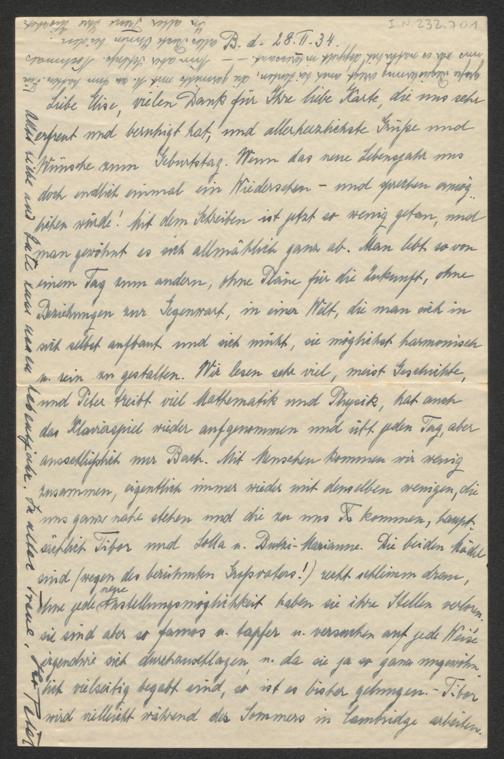 I.N. 232.701
B. d. 28.II.34.
Liebe Elise, vielen Dank für Ihre liebe Karte, die uns sehr
erfreut und beruhigt hat, und allerherzlichste Grüße und
Wünsche zum Geburtstag. Wenn das neue Lebensjahr uns
doch endlich einmal ein Wiedersehen – und sprechen ermög-
lichen würde! Mit dem Schreiben ist jetzt so wenig getan, und
man gewöhnt es sich allmählich ganz ab. Man lebt so von
einem Tag zum andern, ohne Pläne für die Zukunft, ohne
Beziehungen zur Gegenwart, in einer Welt, die man sich in
sich selbst aufbaut und sich müht, sie möglichst harmonisch
u. rein zu gestalten. Wir lesen sehr viel, meist Geschichte,
und Peter treibt viel Mathematik und Physik, hat auch
das Klavierspiel wieder aufgenommen und übt jeden Tag, aber
ausschließlich nur Bach. Mit Menschen kommen wir wenig
zusammen, eigentlich immer wieder mit denselben wenigen, die
uns ganz nahe stehen und die zu uns kommen, haupt-
sächlich Tibor und Lolla u. Marianne. Die beiden Mädel
sind (wegen des berühmten Großvaters!) recht schlimm dran,
ohne jede neue Anstellungsmöglichkeit haben sie ihre Stellen verloren.
sie sind aber so famos u. tapfer u. versuchen auf jede Weise
irgendwie sich durchzuschlagen, u. da sie ja so ganz ungewöhn-
lich vielseitig begabt sind, so ist es bisher gelungen. – Tibor
wird vielleicht während des Sommers in Cambridge arbeiten.
Alles Liebe und Gute zum neuen Lebensjahre. In alter Treue, Ihr Peter